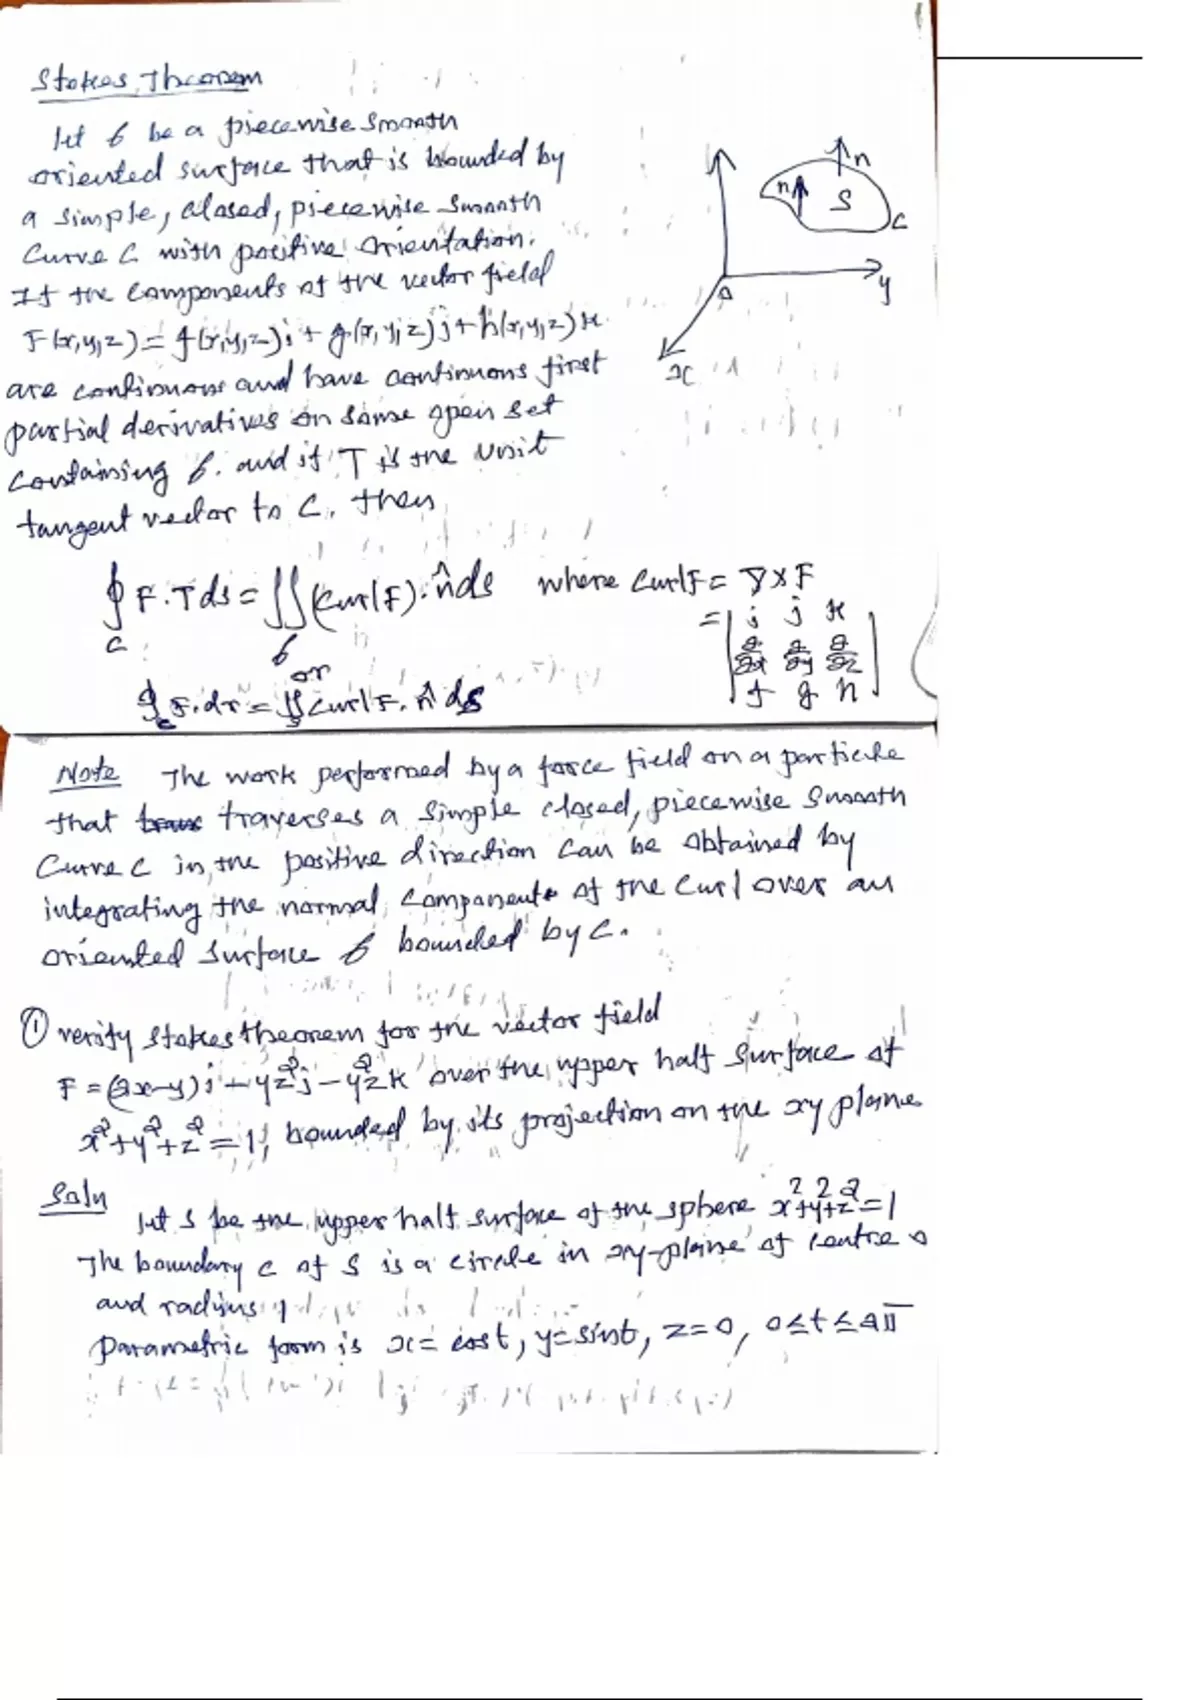 Stokes Theorem
Let σ be a piecewise smooth
oriented surface that is bounded by
a simple, closed, piecewise smooth
Curve C with positive orientation.
If the components of the vector field
F(x,y,z) = f(x,y,z)i + g(x,y,z)j + h(x,y,z)k
are continuous and have continuous first
partial derivatives on some open set
containing σ. and if T is the unit
tangent vector to C, then
n
n S
C
O y
x
∮ F.Tds = ∬ (curl F).n̂ ds where curl F = ∇×F
C σ
= | i j k |
| ∂/∂x ∂/∂y ∂/∂z |
| f g h |
or
∮c F.dr = ∬s curl F. n̂ ds
Note The work performed by a force field on a particle
that traverses a simple closed, piecewise smooth
Curve C in the positive direction can be obtained by
integrating the normal component of the curl over an
oriented surface σ bounded by C.
① verify stokes theorem for the vector field
F = (2x-y)i - yz²j - y²zk over the upper half surface of
x²+y²+z²=1, bounded by its projection on the xy plane
Soln
let S be the upper half surface of the sphere x²+y²+z²=1
The boundary C of S is a circle in xy-plane of centre o
and radius 1
Parametric form is x = cost, y = sint, z = 0, 0≤t≤2π